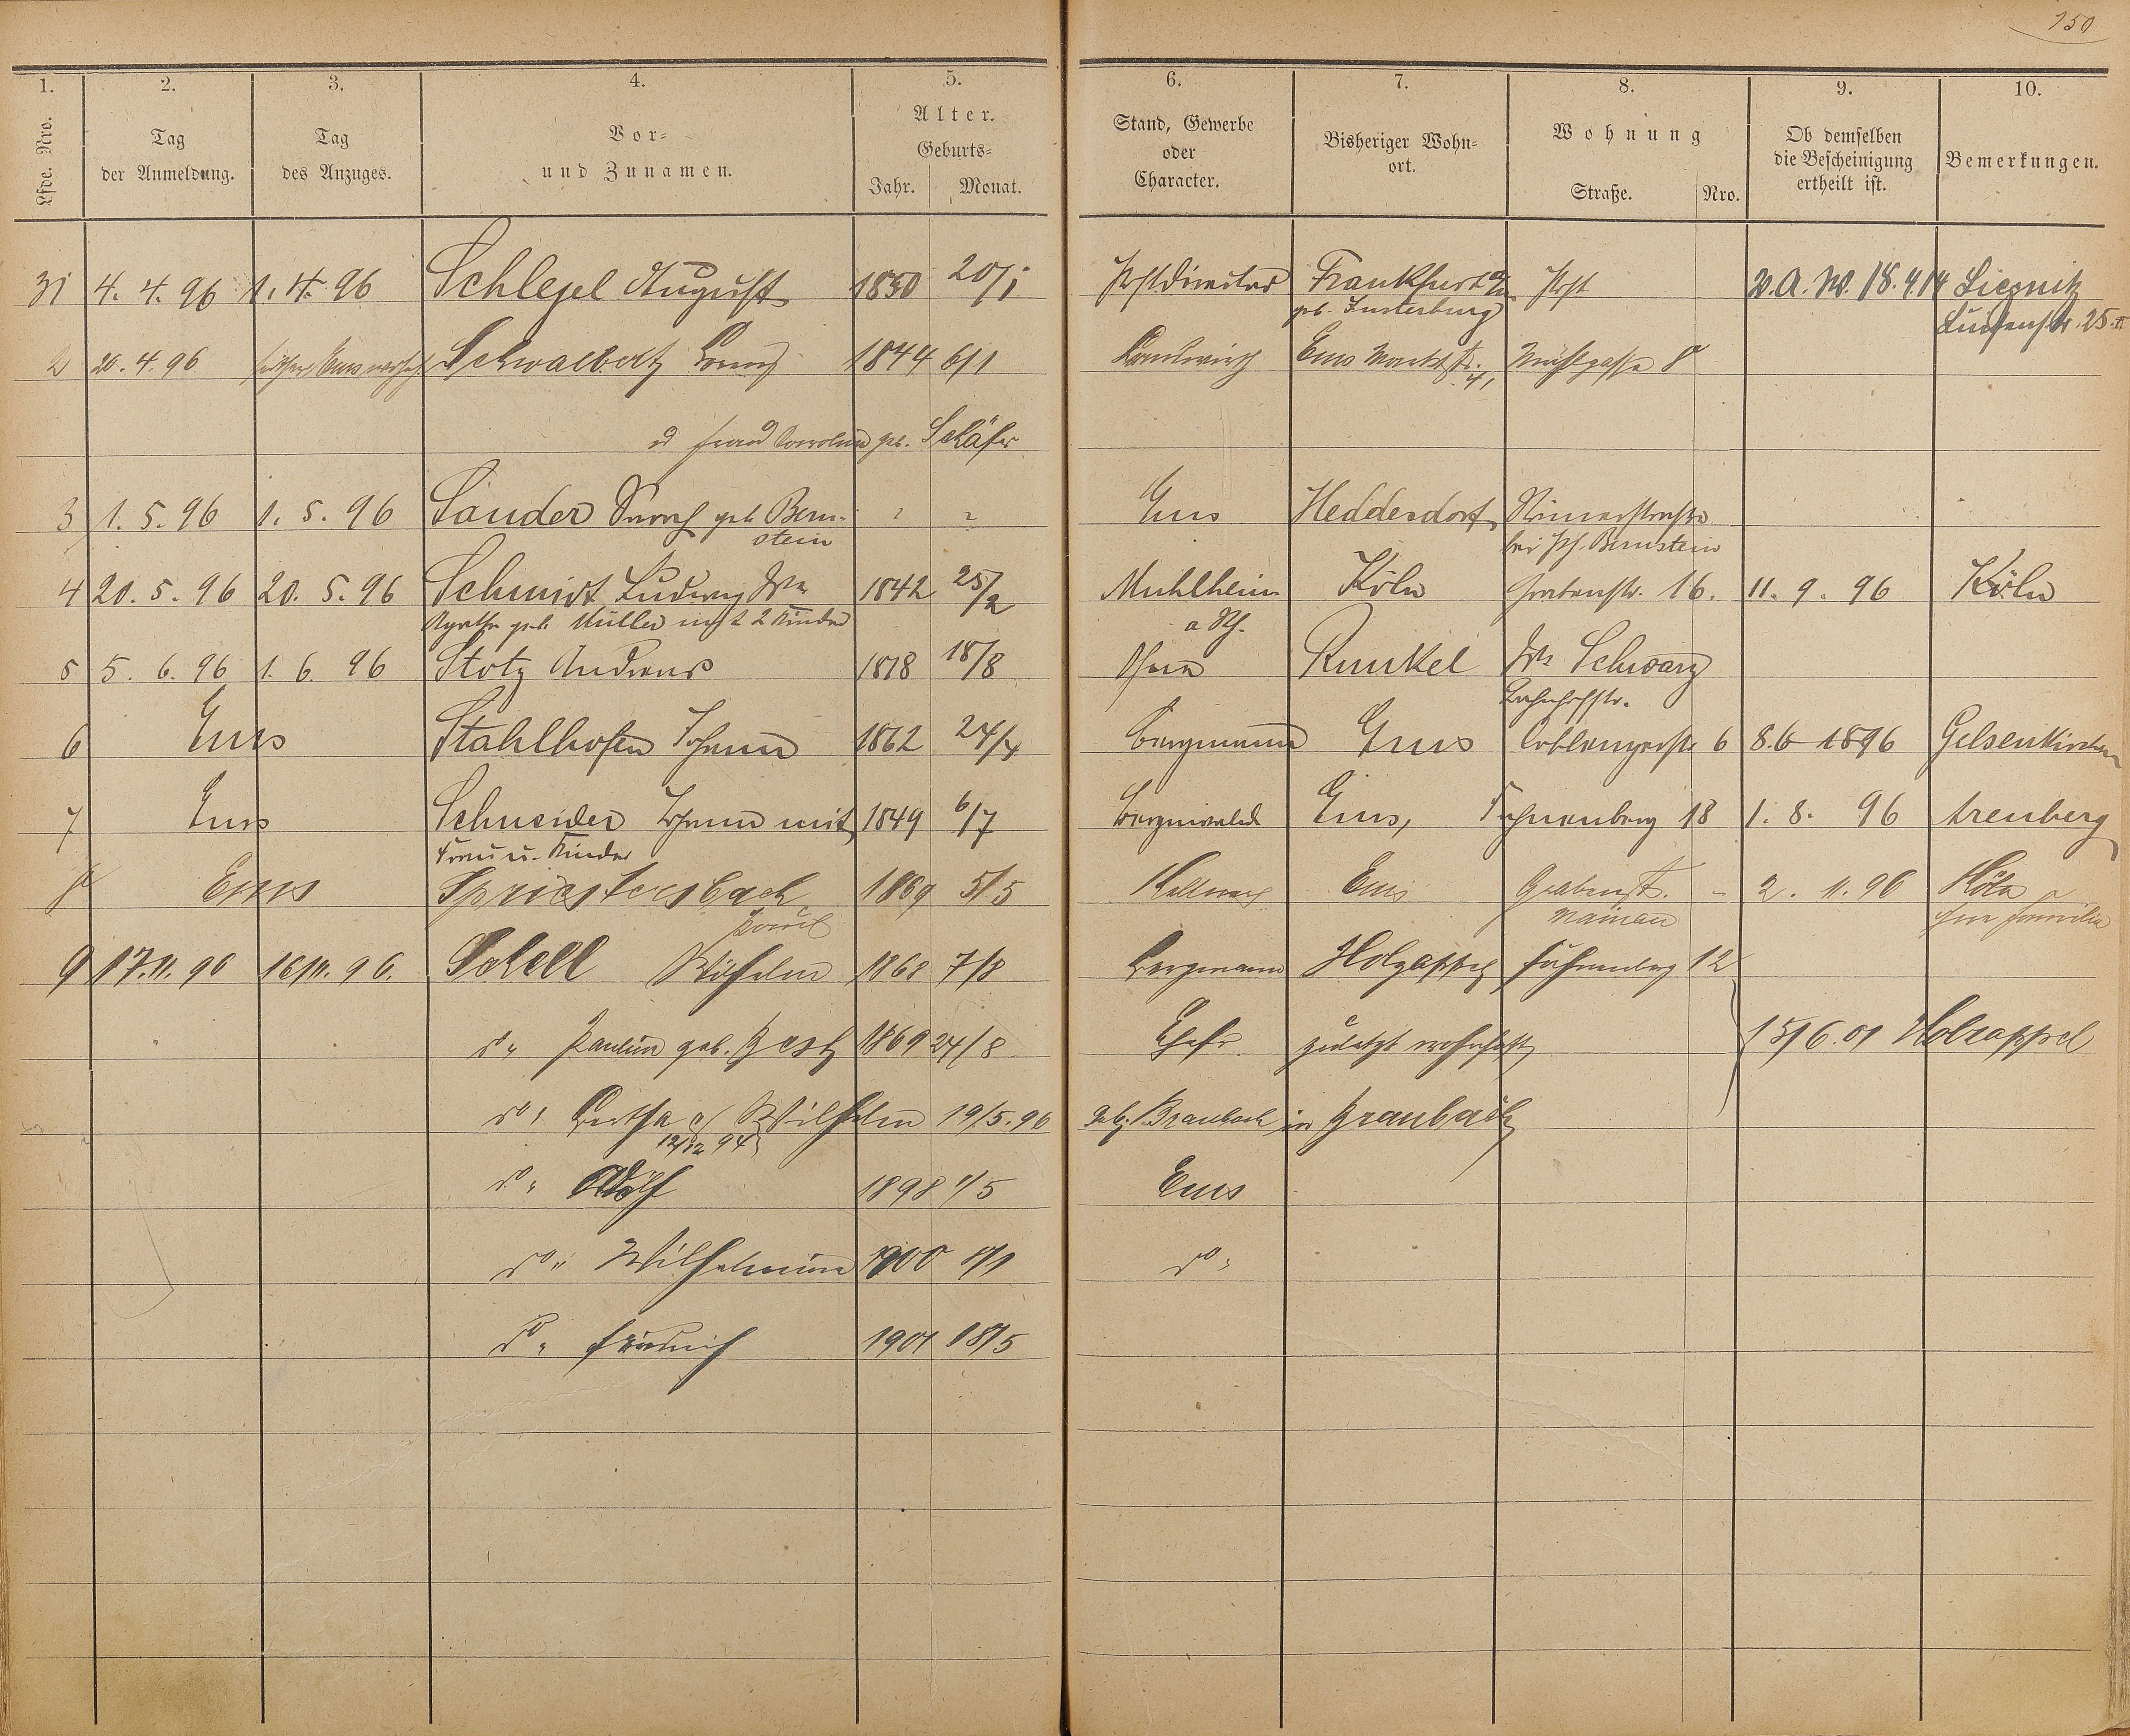 150
1. 2. 3. 4. 5. 6. 7. 8. 9. 10.
Lfde. Nro. Tag der Anmeldung. Tag des Anzuges. Vor- und Zunamen. Alter. Geburts- Jahr. Monat. Stand, Gewerbe oder Character. Bisheriger Wohn- ort. Wohnung Straße. Nro. Ob demselben die Bescheinigung ertheilt ist. Bemerkungen.
31 4. 4. 96 1. 4. 96 Schlegel August 1850 20/1 Postdirector Frankfurt Post 18.4.14 Liegnitz
geb. Insterburg Luisenstr. 25 II
2 20. 4. 96 Schwalbach 1844 6/1 Landwirth Ems Marktstr. 41 Mühlgasse 8
geb. Schäfer
3 1. 5. 96 1. 5. 96 Sander geb. Bern- Ems Heddesdorf Römerstraße
stein bei Ph. Bernstein
4 20. 5. 96 20. 5. 96 Schmidt Ludwig Ww 1842 25/2 Mühlheim Köln Grabenstr. 16. 11. 9. 96 Köln
Agathe geb. Müller mit 2 Kinder a Rh.
5 5. 6. 96 1. 6. 96 Stotz Andreas 1878 18/8 Runkel Ww Schwarz
Bahnhofstr.
6 Ems Stahlhofen Johann 1862 24/4 Bergmann Ems Coblenzerstr 6 8.6 1896 Gelsenkirchen
7 Ems Schneider Johann mit 1849 6/7 Berginvalid Ems, Fahnenberg 18 1. 8. 96 Arenberg
Frau u. Kinder
8 Ems Spriestersbach 1869 5/5 Kellner Ems Grabenstr. - 2. 11. 96 Köln
Mainau Familie
9 17. 11. 96 16/11. 96. Schell Wilhelm 1868 7/8 Bergmann Holzappel Fahnenberg 12
do Pauline geb. 1869 24/8 Ehefr. zuletzt wohnhaft 15/6.01 Holzappel
do Bertha Wilhelm 19/5. 96 geb. Braubach in Braubach
12/12 94
do Adolf 1898 1/5 Ems
do Wilhelmine 1900 8/1 do
do Friedrich 1901 18/5